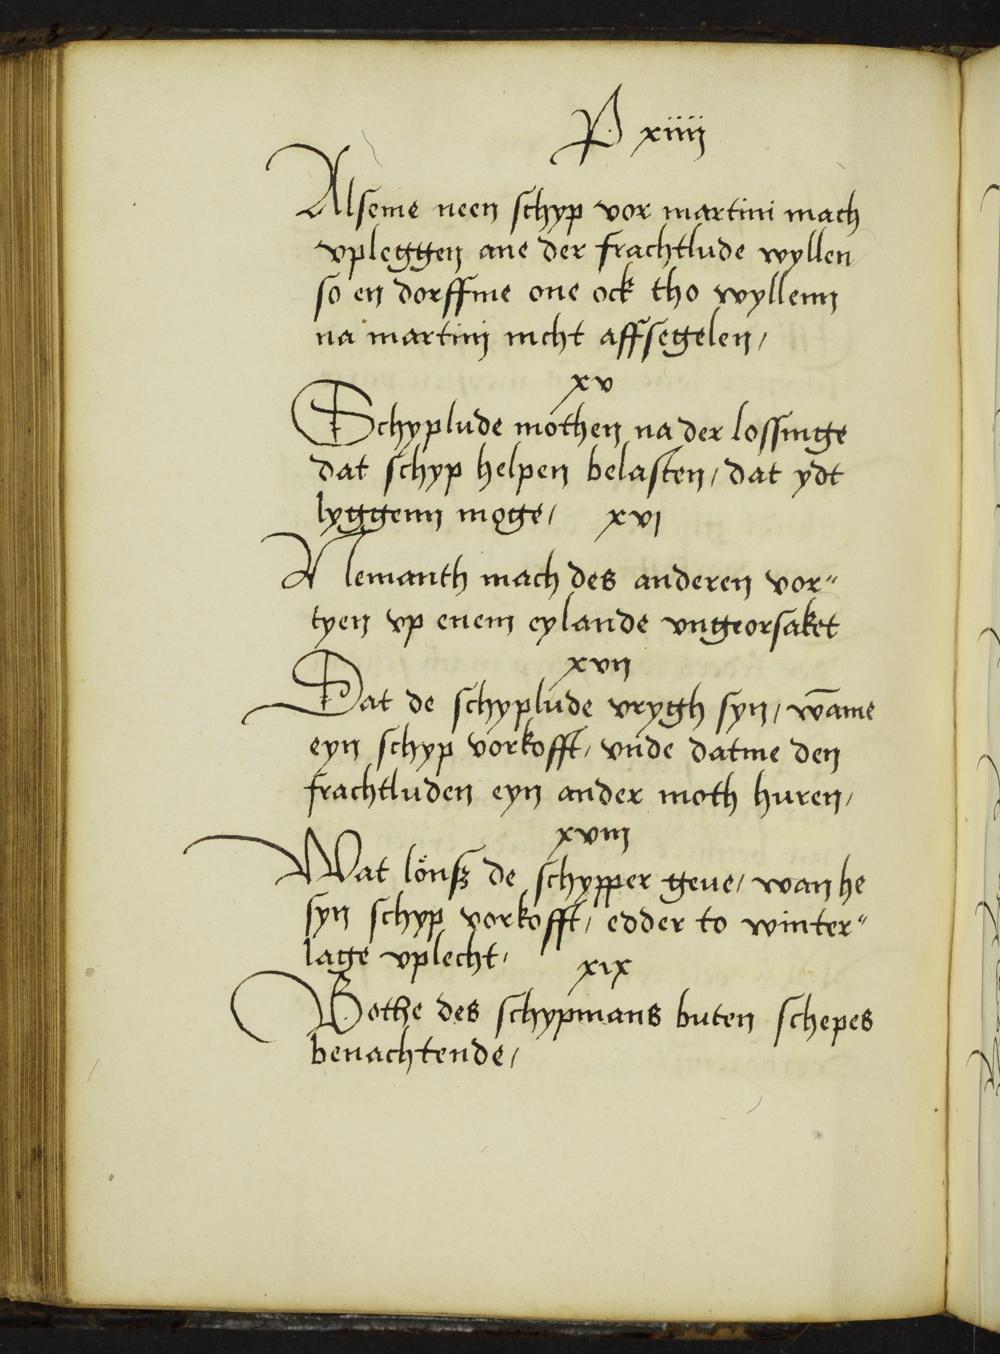 P xiiij
Alseme neen schyp vor martini mach
vpleggen ane der frachtlude wyllen
so en dorffme one ock tho wyllenn
na martinj nicht affsegelen /
xv
Schyplude mothen na der lossinge
dat schyp helpen belasten / dat ydt
lyggenn moge / xvi
Nemanth mach des anderen vor"
tyen vp enem eylande vngeorsaket
xvij
Dat de schyplude vrygh syn / wāme
eyn schyp vorkofft / vnde datme den
frachtluden eyn ander moth huren /
xviij
Wat lönß de schypper geue / wan he
syn schyp vorkofft / edder to winter"
lage vplecht / xix
Bothe des schypmans buten schepes
benachtende /